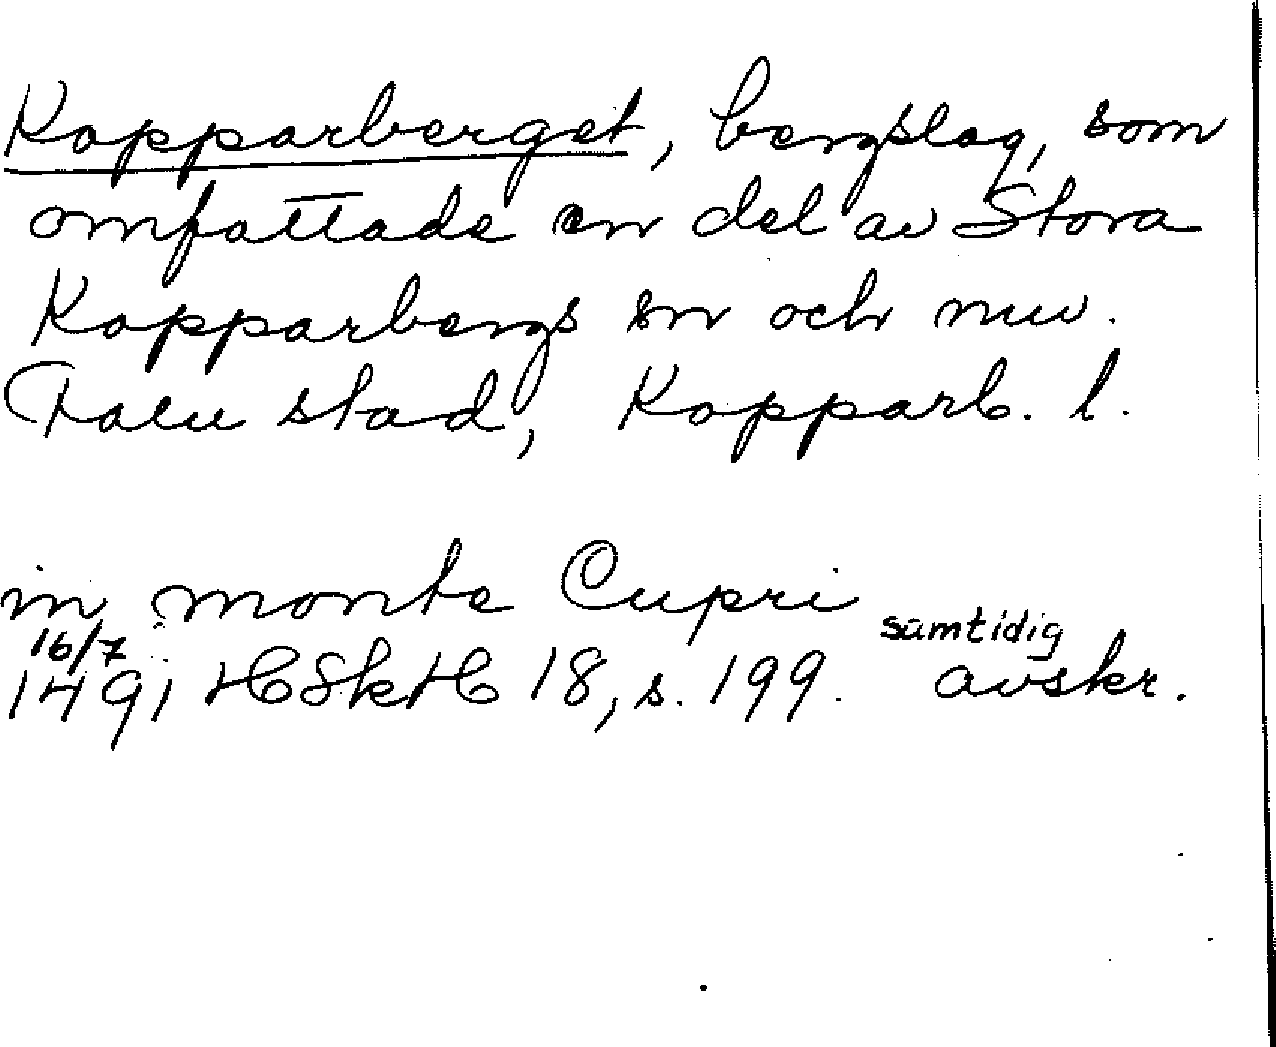 Kopparberget, bergslag, som
omfattade en del av Stora
Kopparbergs sn och nuv.
Falu stad, Kopparb. l.
in monte Cupri
16/7 samtidig
1491 HSkH 18, s. 199. avskr.